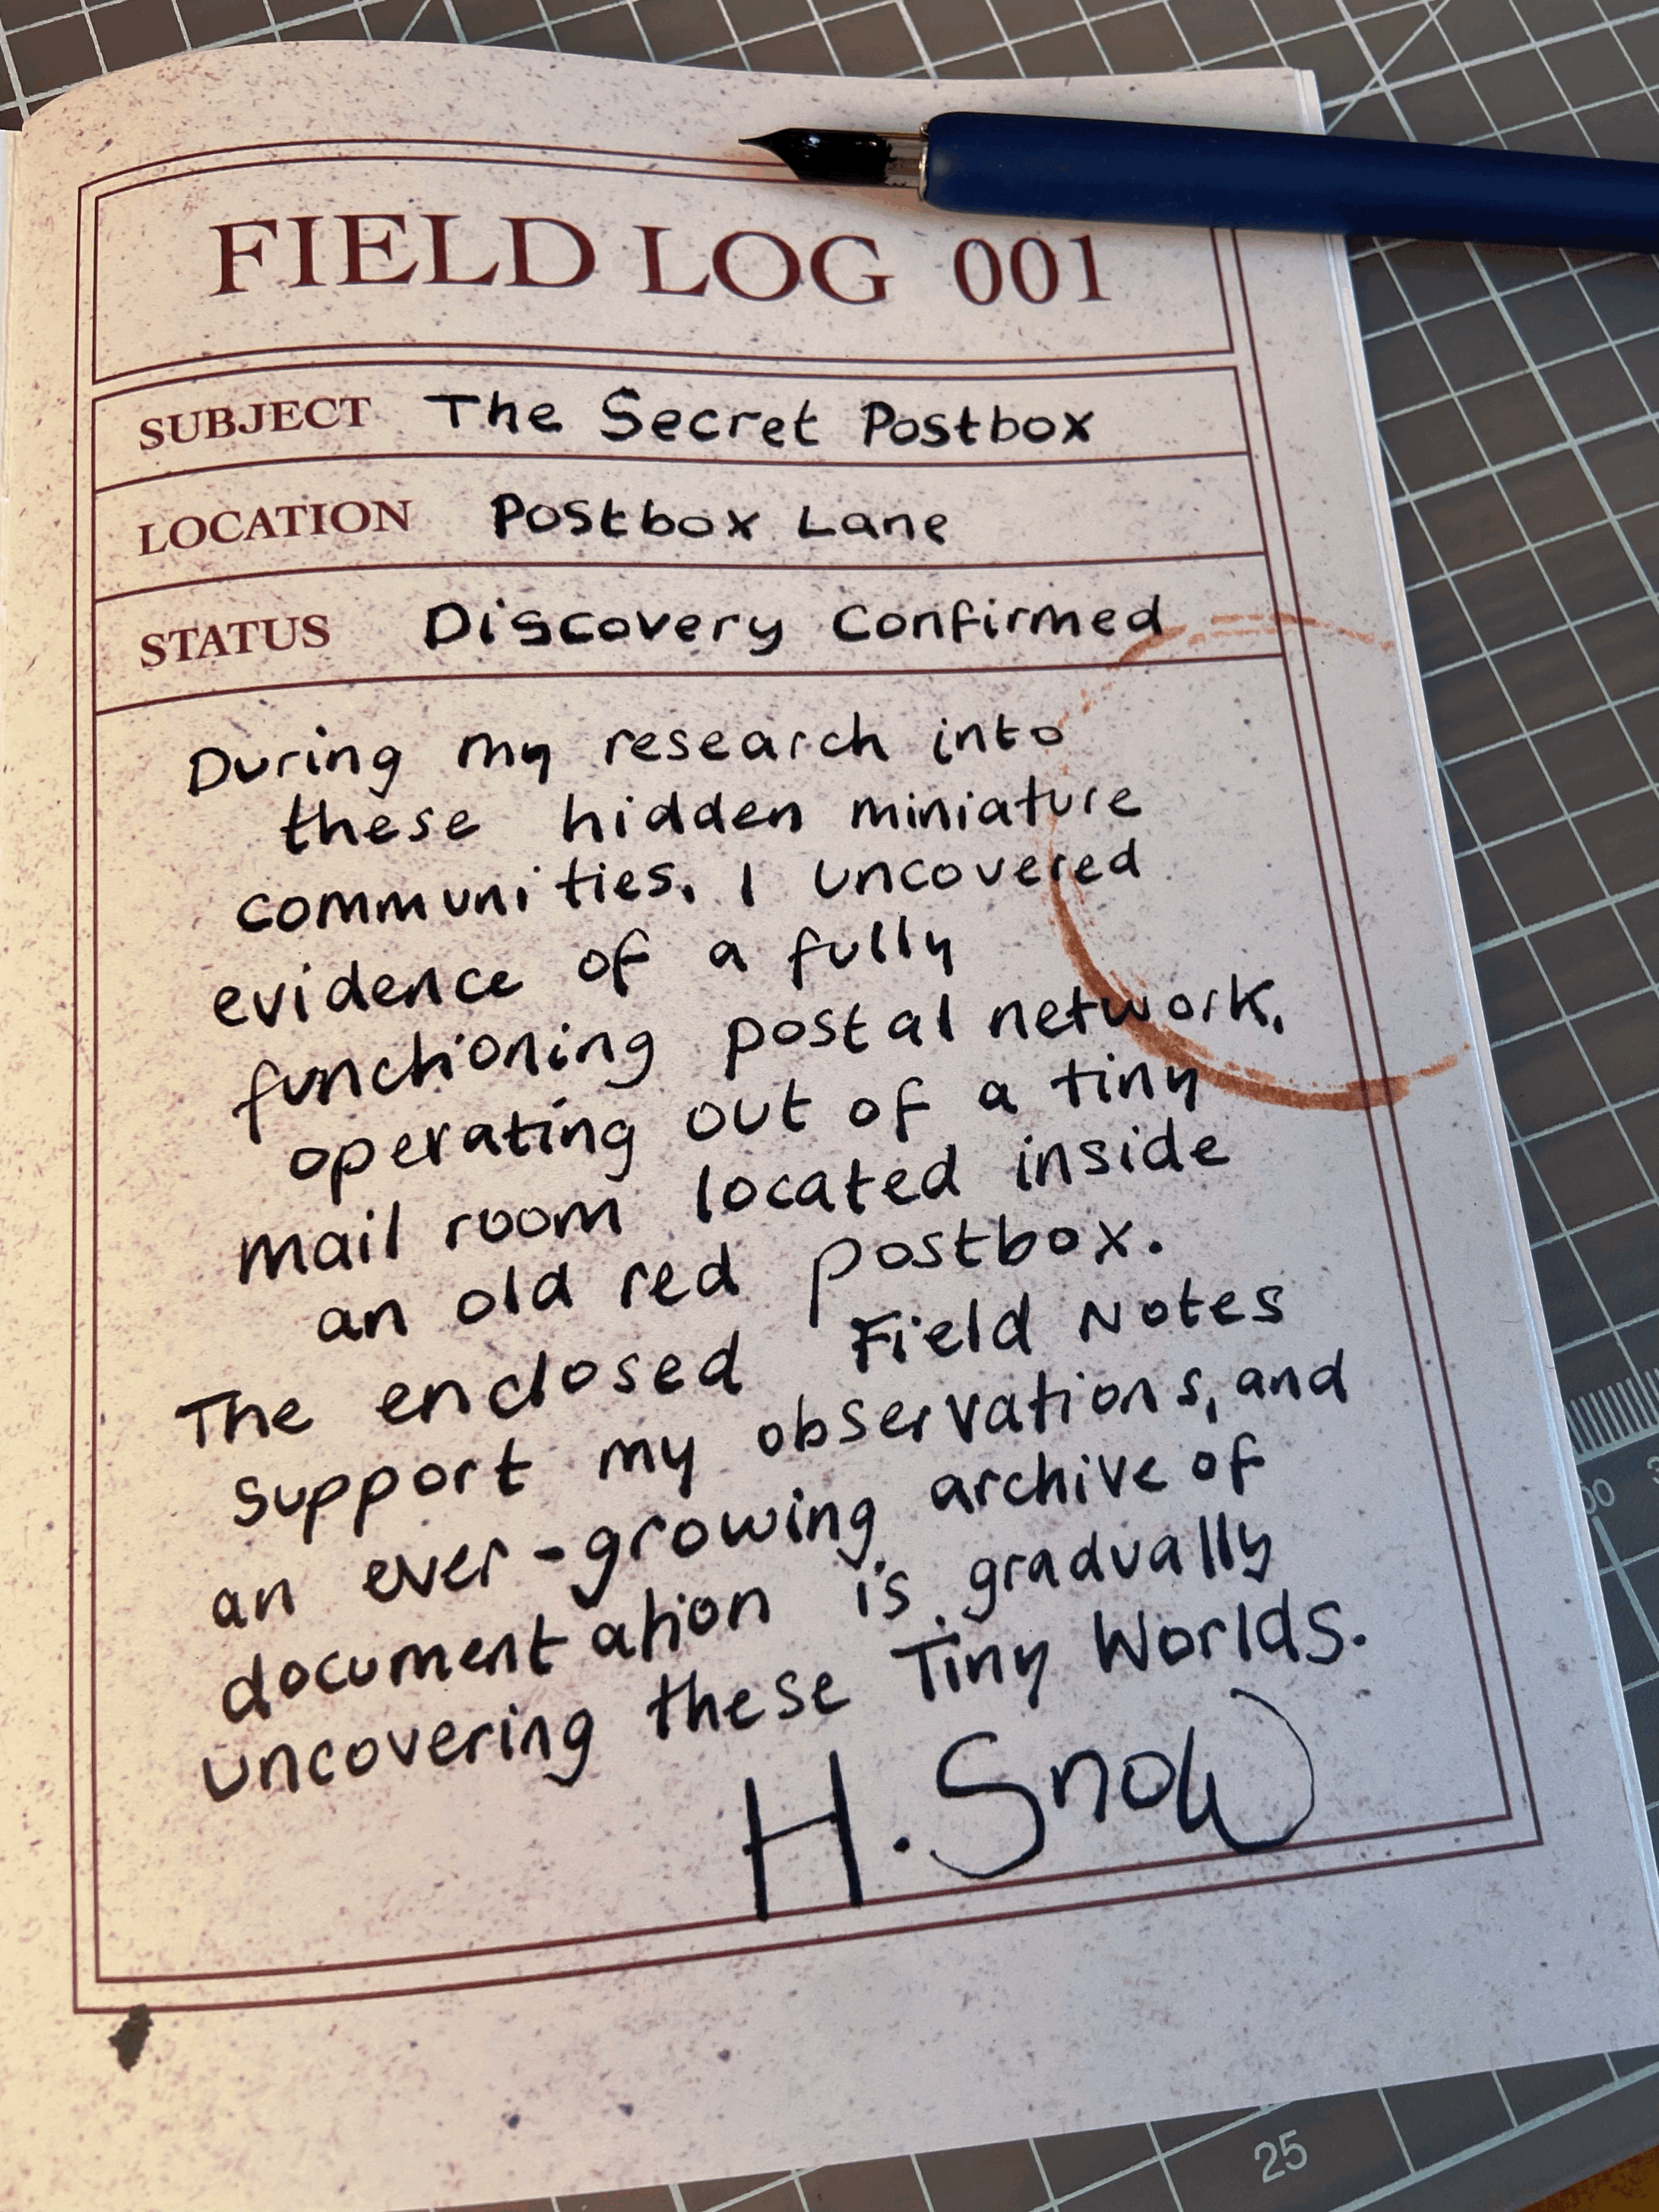 FIELD LOG 001
SUBJECT The Secret Postbox
LOCATION Postbox Lane
STATUS Discovery Confirmed
During my research into
these hidden miniature
communities, I uncovered
evidence of a fully
functioning postal network,
operating out of a tiny
mail room located inside
an old red postbox.
The enclosed Field Notes
support my observations, and
an ever-growing archive of
documentation is gradually
uncovering these Tiny Worlds.
H. Snow
25